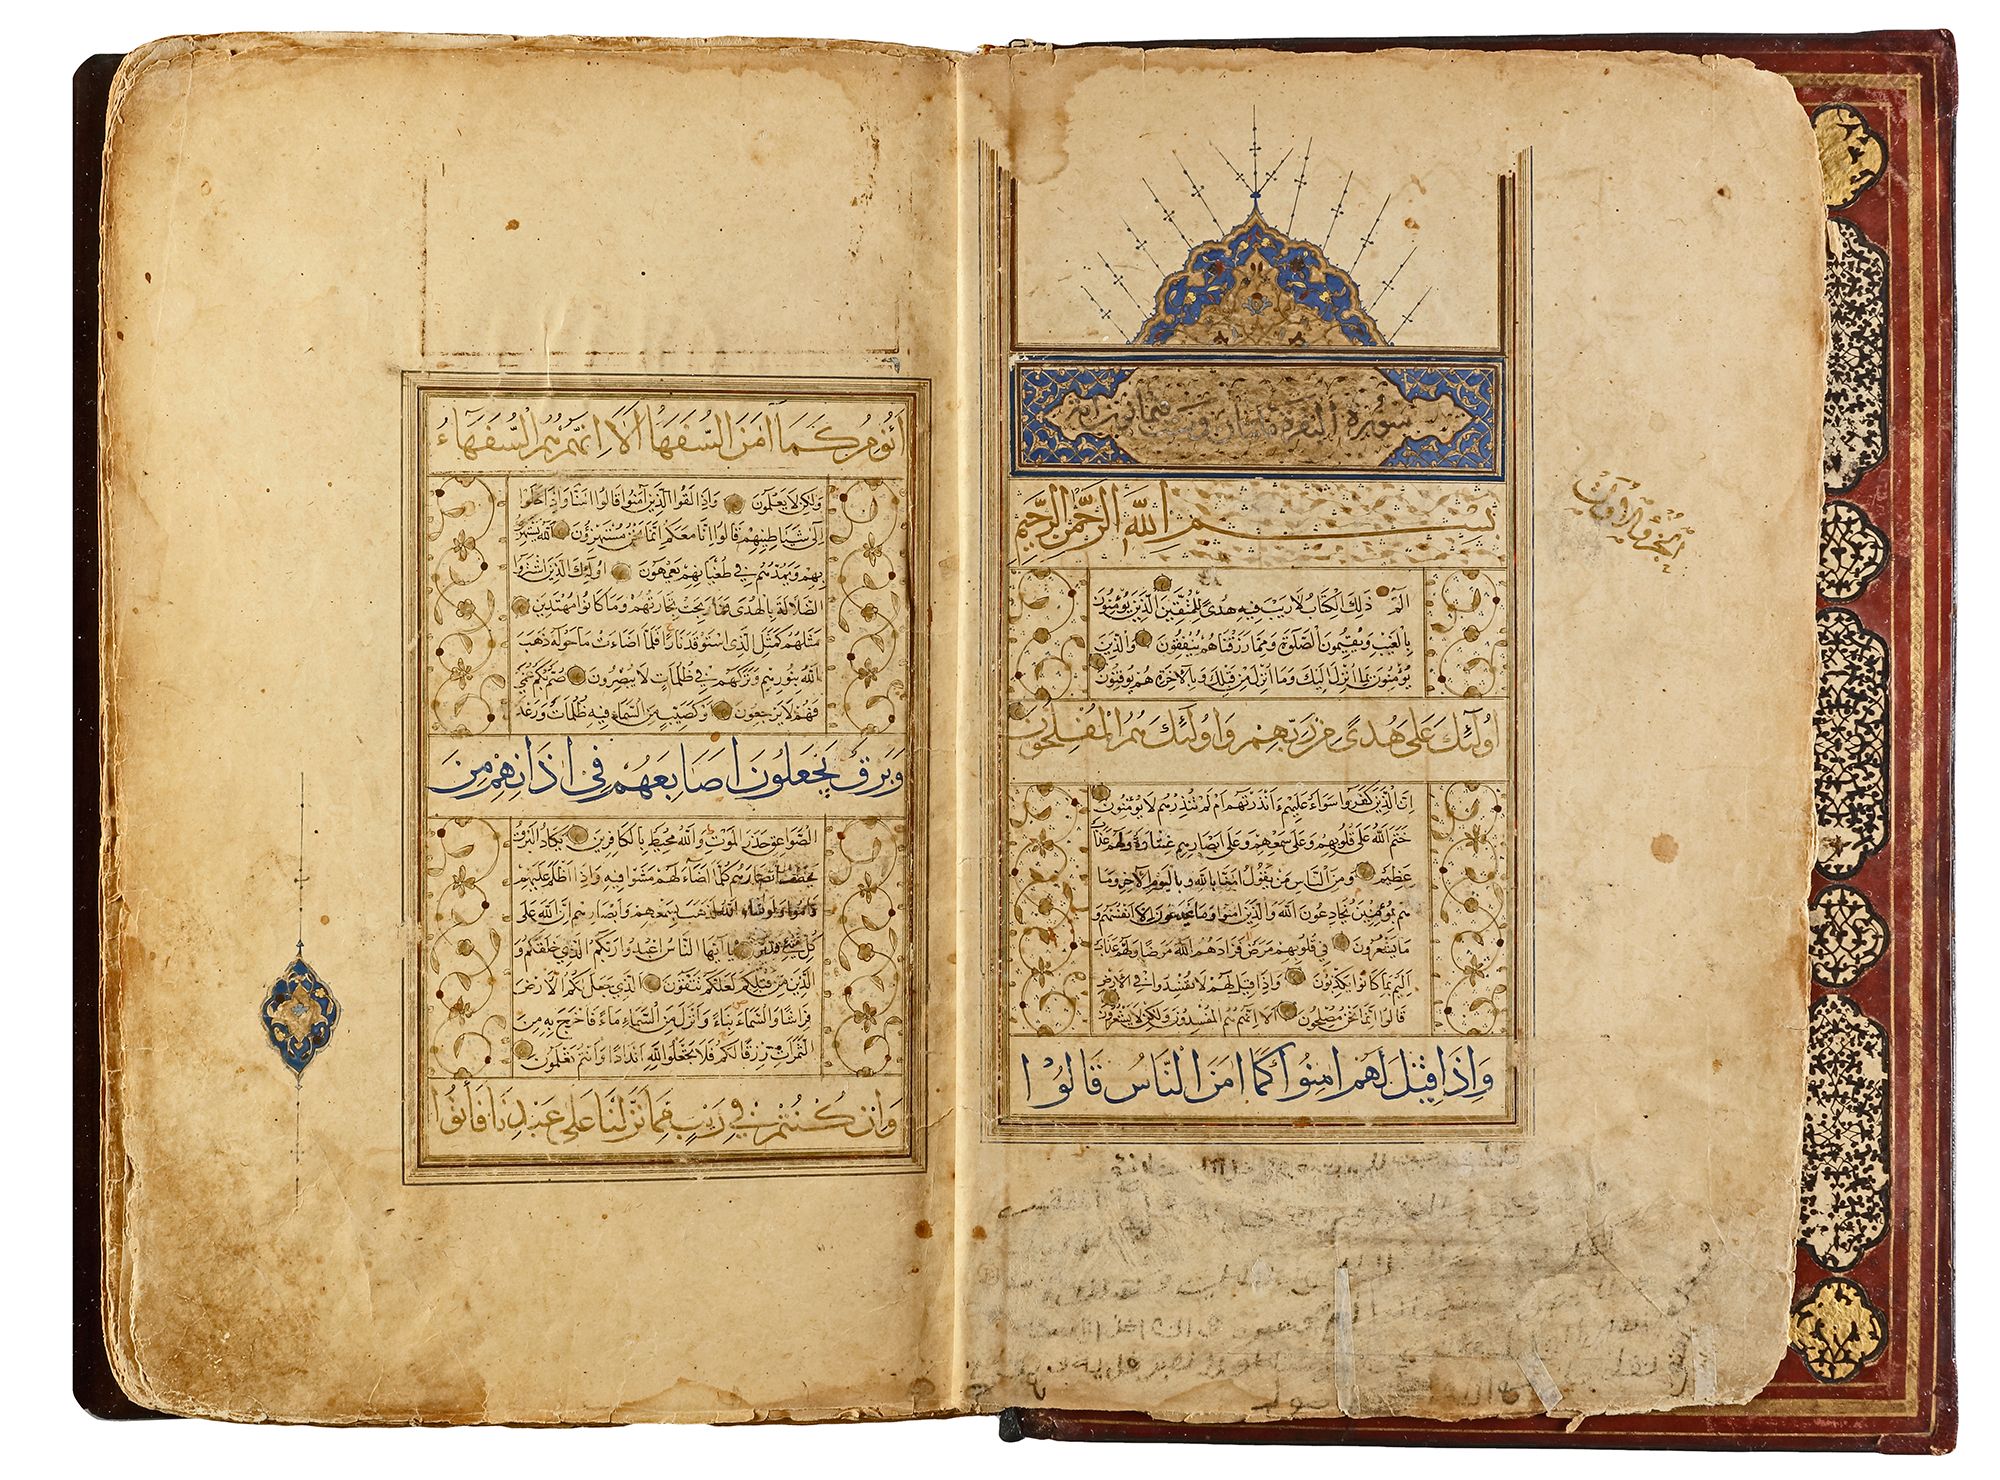 سورة البقرة مائتان وست وثمانون آية
بسم الله الرحمن الرحيم
الم ذلك الكتاب لا ريب فيه هدى للمتقين الذين يؤمنون
بالغيب ويقيمون الصلوة ومما رزقناهم ينفقون والذين
يؤمنون بما أنزل إليك وما أنزل من قبلك وبالآخرة هم يوقنون
أولئك على هدى من ربهم وأولئك هم المفلحون
إن الذين كفروا سواء عليهم ءأنذرتهم أم لم تنذرهم لا يؤمنون
ختم الله على قلوبهم وعلى سمعهم وعلى أبصارهم غشاوة ولهم عذاب
عظيم ومن الناس من يقول آمنا بالله وباليوم الآخر وما
هم بمؤمنين يخادعون الله والذين آمنوا وما يخدعون إلا أنفسهم و
ما يشعرون في قلوبهم مرض فزادهم الله مرضا ولهم عذاب
أليم بما كانوا يكذبون وإذا قيل لهم لا تفسدوا في الأرض
قالوا إنما نحن مصلحون ألا إنهم هم المفسدون ولكن لا يشعرون
وإذا قيل لهم آمنوا كما آمن الناس قالوا
الجزو الاول
أنؤمن كما آمن السفهاء ألا إنهم هم السفهاء
ولكن لا يعلمون وإذا لقوا الذين آمنوا قالوا آمنا وإذا خلوا
إلى شياطينهم قالوا إنا معكم إنما نحن مستهزؤن الله يستهزئ
بهم ويمدهم في طغيانهم يعمهون أولئك الذين اشتروا
الضلالة بالهدى فما ربحت تجارتهم وما كانوا مهتدين
مثلهم كمثل الذي استوقد نارا فلما أضاءت ما حوله ذهب
الله بنورهم وتركهم في ظلمات لا يبصرون صم بكم عمي
فهم لا يرجعون أو كصيب من السماء فيه ظلمات ورعد
وبرق يجعلون أصابعهم في آذانهم من
الصواعق حذر الموت والله محيط بالكافرين يكاد البرق
يخطف أبصارهم كلما أضاء لهم مشوا فيه وإذا أظلم عليهم
قاموا ولو شاء الله لذهب بسمعهم وأبصارهم إن الله على
كل شيء قدير يا أيها الناس اعبدوا ربكم الذي خلقكم و
الذين من قبلكم لعلكم تتقون الذي جعل لكم الأرض
فراشا والسماء بناء وأنزل من السماء ماء فأخرج به من
الثمرات رزقا لكم فلا تجعلوا لله أندادا وأنتم تعلمون
وإن كنتم في ريب مما نزلنا على عبدنا فأتوا